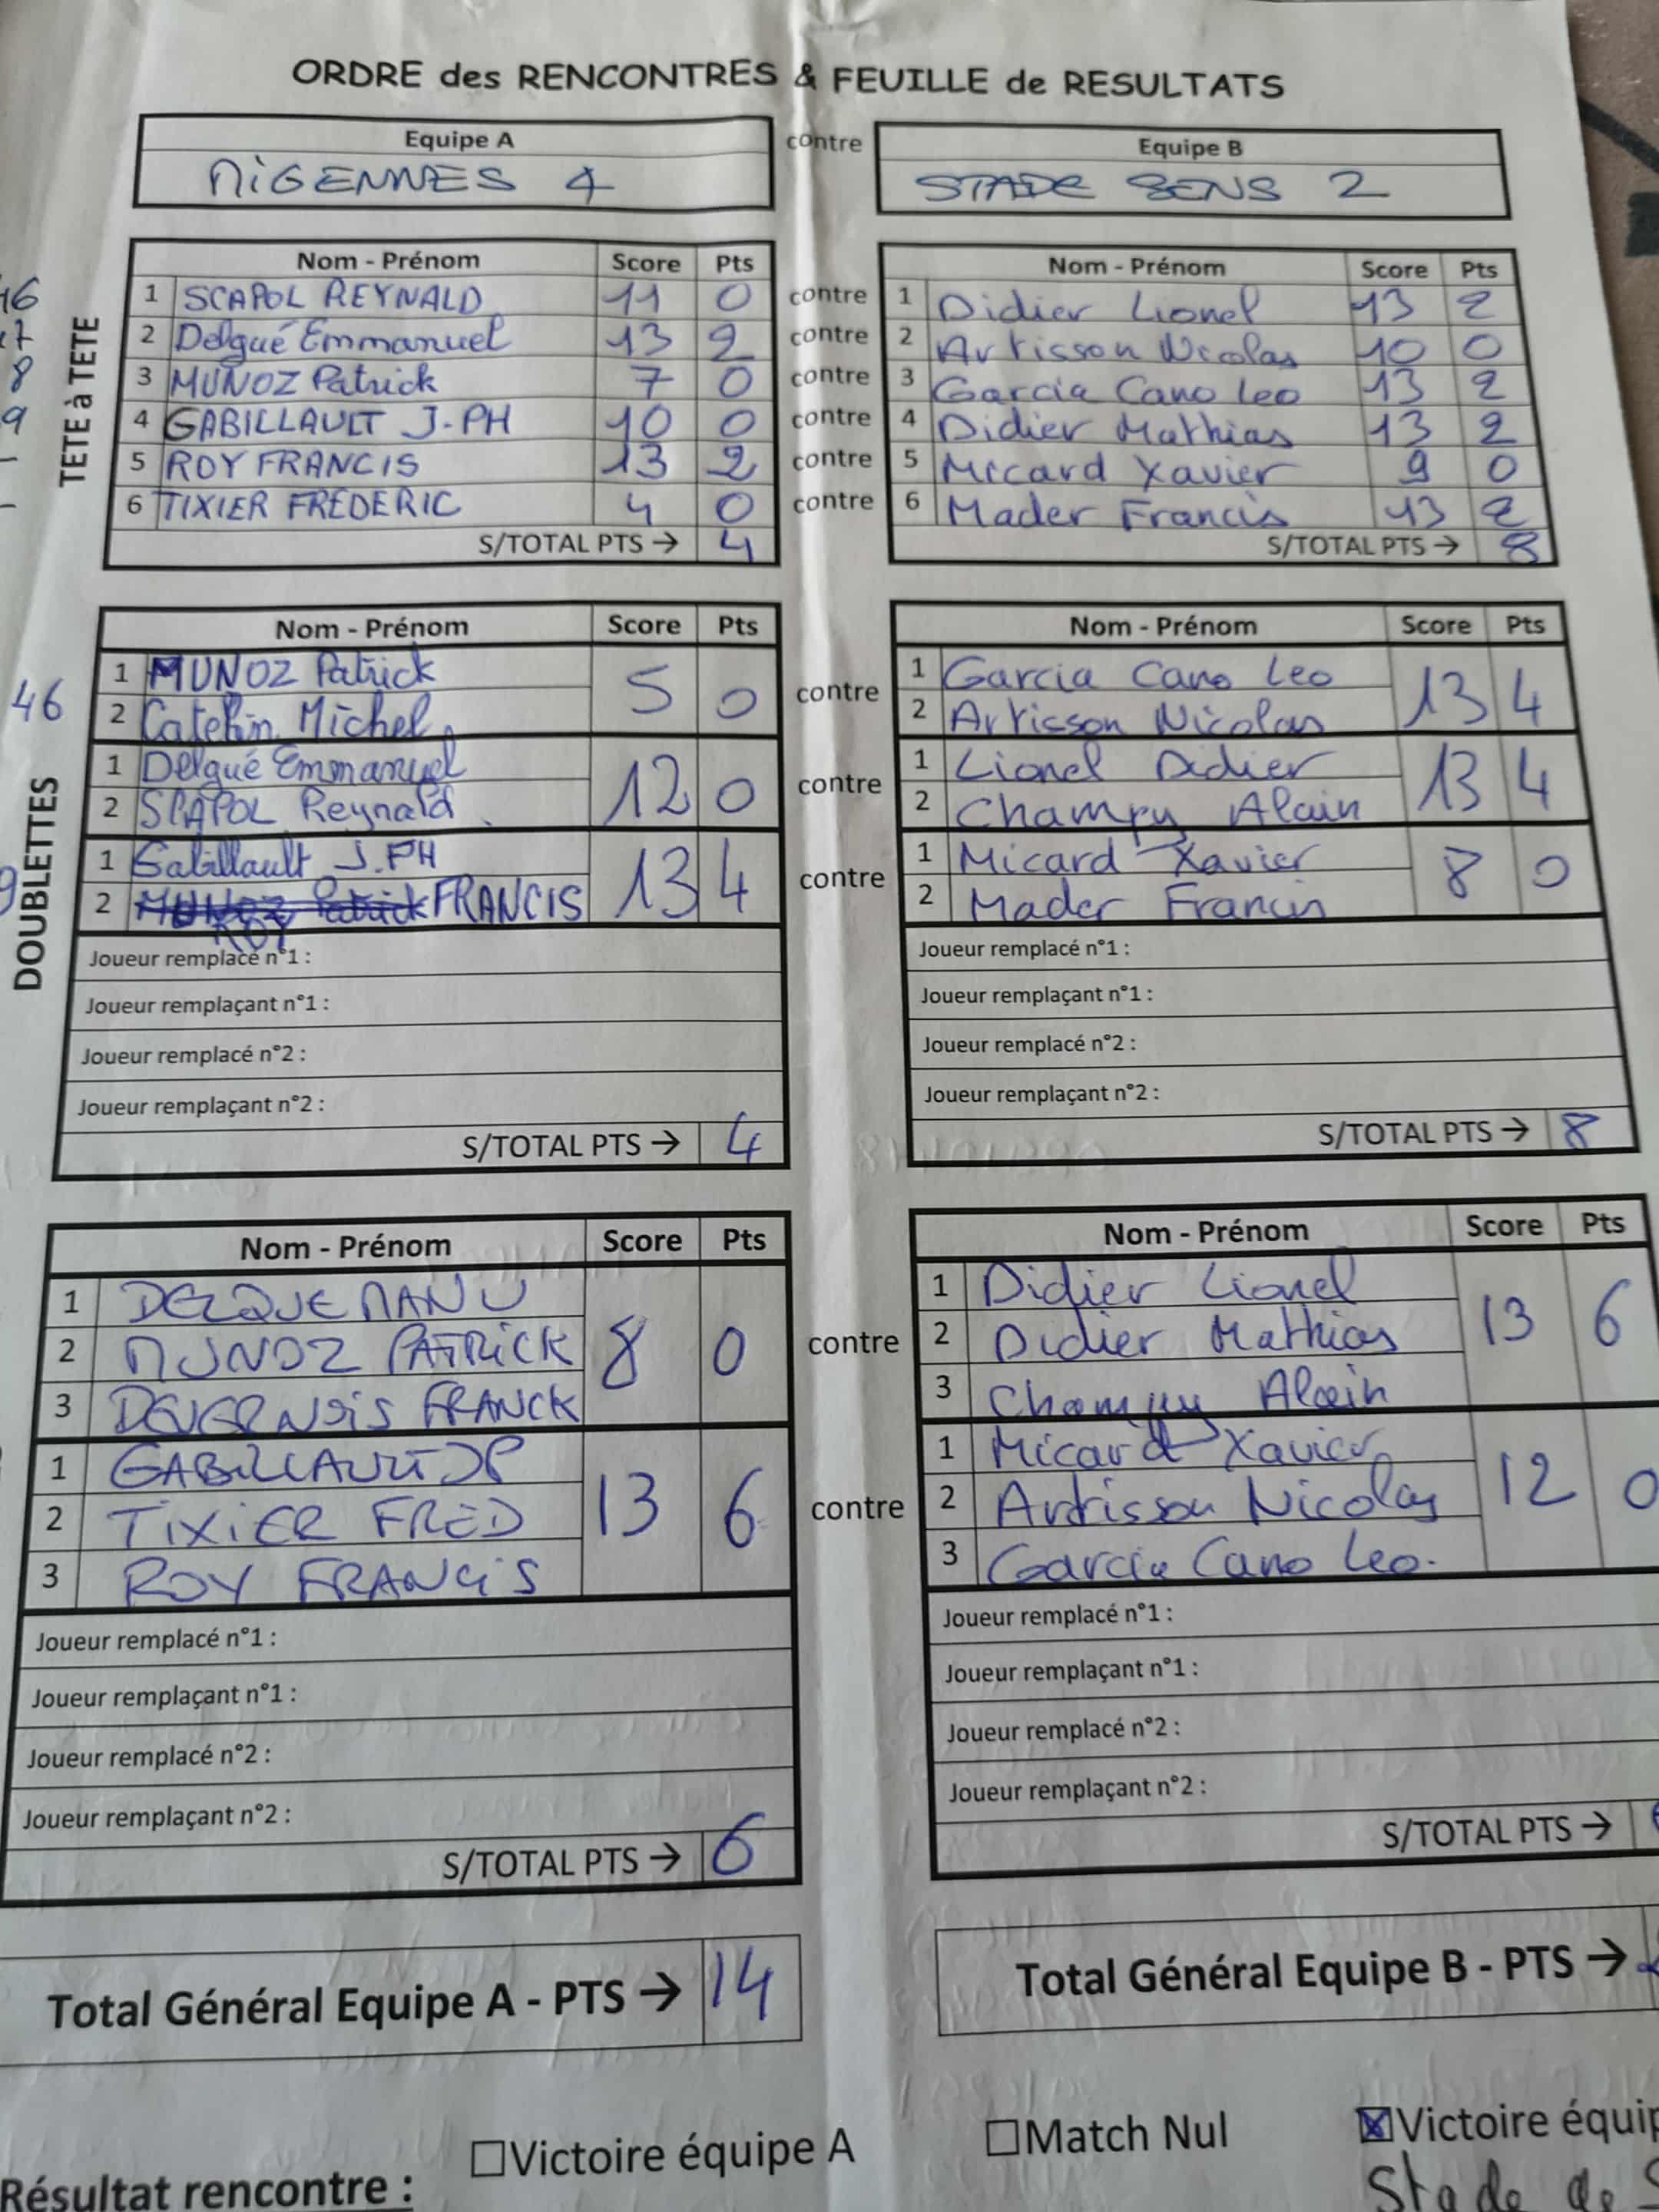 ORDRE des RENCONTRES & FEUILLE de RESULTATS
Equipe A contre Equipe B
MIGENNES 4 STADE SENS 2
TETE à TETE
Nom - Prénom Score Pts Nom - Prénom Score Pts
1 SCAPOL REYNALD 11 0 contre 1 Didier Lionel 13 2
2 Delqué Emmanuel 13 2 contre 2 Artisson Nicolas 10 0
3 MUNOZ Patrick 7 0 contre 3 Garcia Cano Leo 13 2
4 GABILLAULT J-PH 10 0 contre 4 Didier Mathias 13 2
5 ROY FRANCIS 13 2 contre 5 Micard Xavier 9 0
6 TIXIER FREDERIC 4 0 contre 6 Mader Francis 13 2
S/TOTAL PTS → 4 S/TOTAL PTS → 8
DOUBLETTES
Nom - Prénom Score Pts Nom - Prénom Score Pts
46
1 MUNOZ Patrick 5 0 contre 1 Garcia Cano Leo 13 4
2 Michel 2 Artisson Nicolas
1 Delqué Emmanuel 12 0 contre 1 Lionel Didier 13 4
2 SCAPOL Reynald 2 Champy Alain
1 Gabillault J.PH 13 4 contre 1 Micard Xavier 8 0
2 MUNOZ Patrick FRANCIS 2 Mader Francis
ROY
Joueur remplacé n°1 : Joueur remplacé n°1 :
Joueur remplaçant n°1 : Joueur remplaçant n°1 :
Joueur remplacé n°2 : Joueur remplacé n°2 :
Joueur remplaçant n°2 : Joueur remplaçant n°2 :
S/TOTAL PTS → 4 S/TOTAL PTS → 8
Nom - Prénom Score Pts Nom - Prénom Score Pts
1 DELQUE MANU 8 0 contre 1 Didier Lionel 13 6
2 MUNOZ PATRICK 2 Didier Mathias
3 DEVERNOIS FRANCK 3 Champy Alain
1 GABILLAULT JP 13 6 contre 1 Micard Xavier 12 0
2 TIXIER FRED 2 Artisson Nicolas
3 ROY FRANCIS 3 Garcia Cano Leo.
Joueur remplacé n°1 : Joueur remplacé n°1 :
Joueur remplaçant n°1 : Joueur remplaçant n°1 :
Joueur remplacé n°2 : Joueur remplacé n°2 :
Joueur remplaçant n°2 : Joueur remplaçant n°2 :
S/TOTAL PTS → 6 S/TOTAL PTS →
Total Général Equipe A - PTS → 14 Total Général Equipe B - PTS →
Résultat rencontre : Victoire équipe A Match Nul Victoire équip
Stade de S